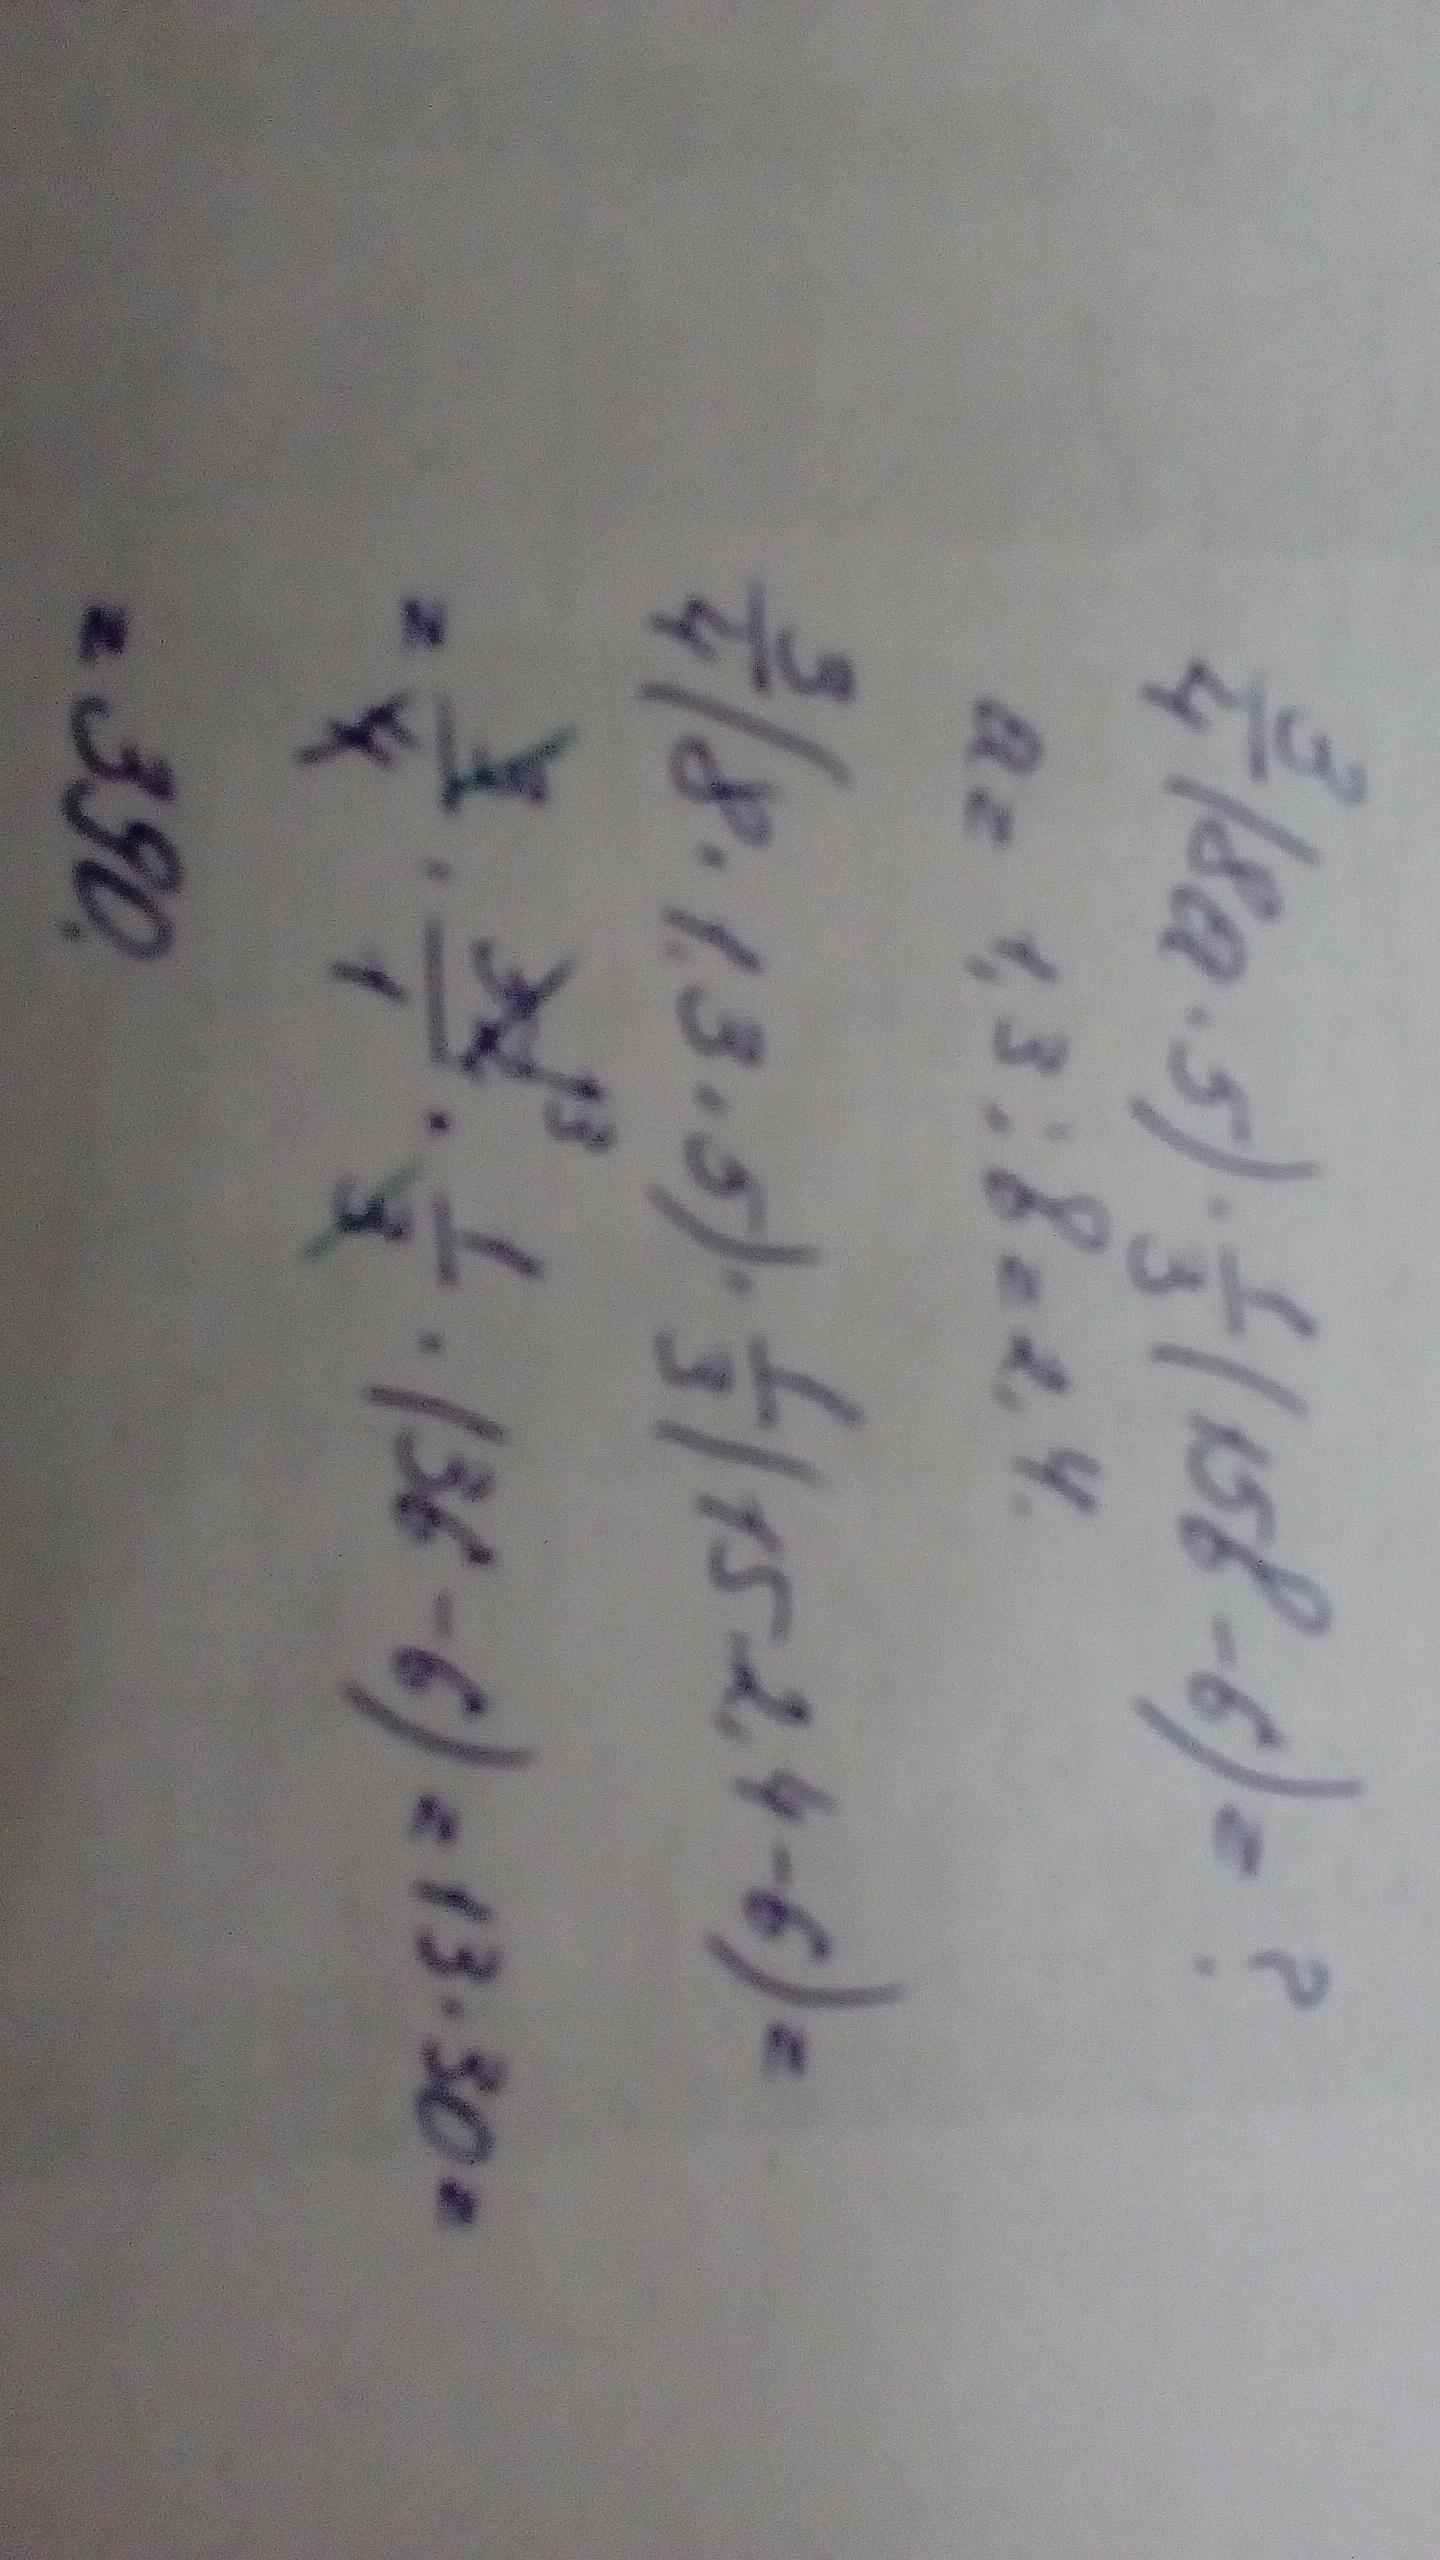 3/4(8a·5)·1/3(15b-6)=?
a=1,3; b=2,4.
3/4(8·1,3·5)·1/3(15·2,4-6)=
=3/4·52 13/1·1/3·(36-6)=13·30=
=390